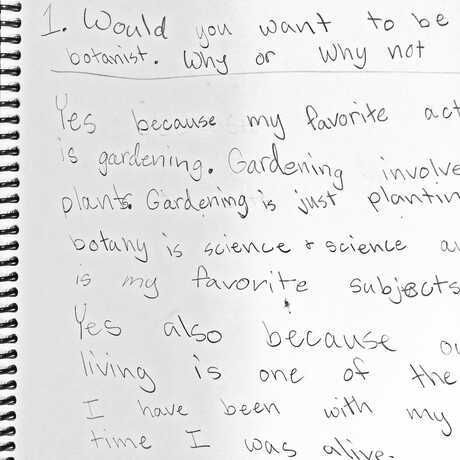 1. Would you want to be
botanist. Why or Why not
Yes because my favorite act
is gardening. Gardening involve
plants. Gardening is just plantin
botany is science & science a
is my favorite subjects
Yes also because ou
living is one of the
I have been with my
time I was alive.